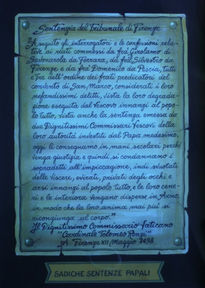 Sentenza del Tribunale di Firenze
A seguito gli interrogatori e le confessioni rela-
tive ai reati commessi da fra' Girolamo di
Savonarola da Ferrara, da fra' Silvestro da
Firenze e da fra' Domenico da Pescia, tutti
e tre dell'ordine dei frati predicatori del
convento di San Marco, considerati i loro
infamissimi delitti, vista la loro degrada-
zione eseguita dal Vescovo innanzi al popo-
lo tutto, vista anche la sentenza emessa da
due Dignissimi Commissari Vescovi nella
loro autorità investiti dal Papa medesimo,
oggi li consegniamo in mani secolari perché
venga giustizia e quindi si condannano i
sopradetti all'impiccagione, indi svuotati
nelle viscere, privati degli occhi e
arsi innanzi al popolo tutto, e le loro cene-
ri e le interiora vengano disperse in Arno,
in modo che la loro anima mai più si
ricongiunga al corpo."
Il Dignissimo Commissario
Cardinale
Firenze Maggio 1498
SADICHE SENTENZE PAPALI